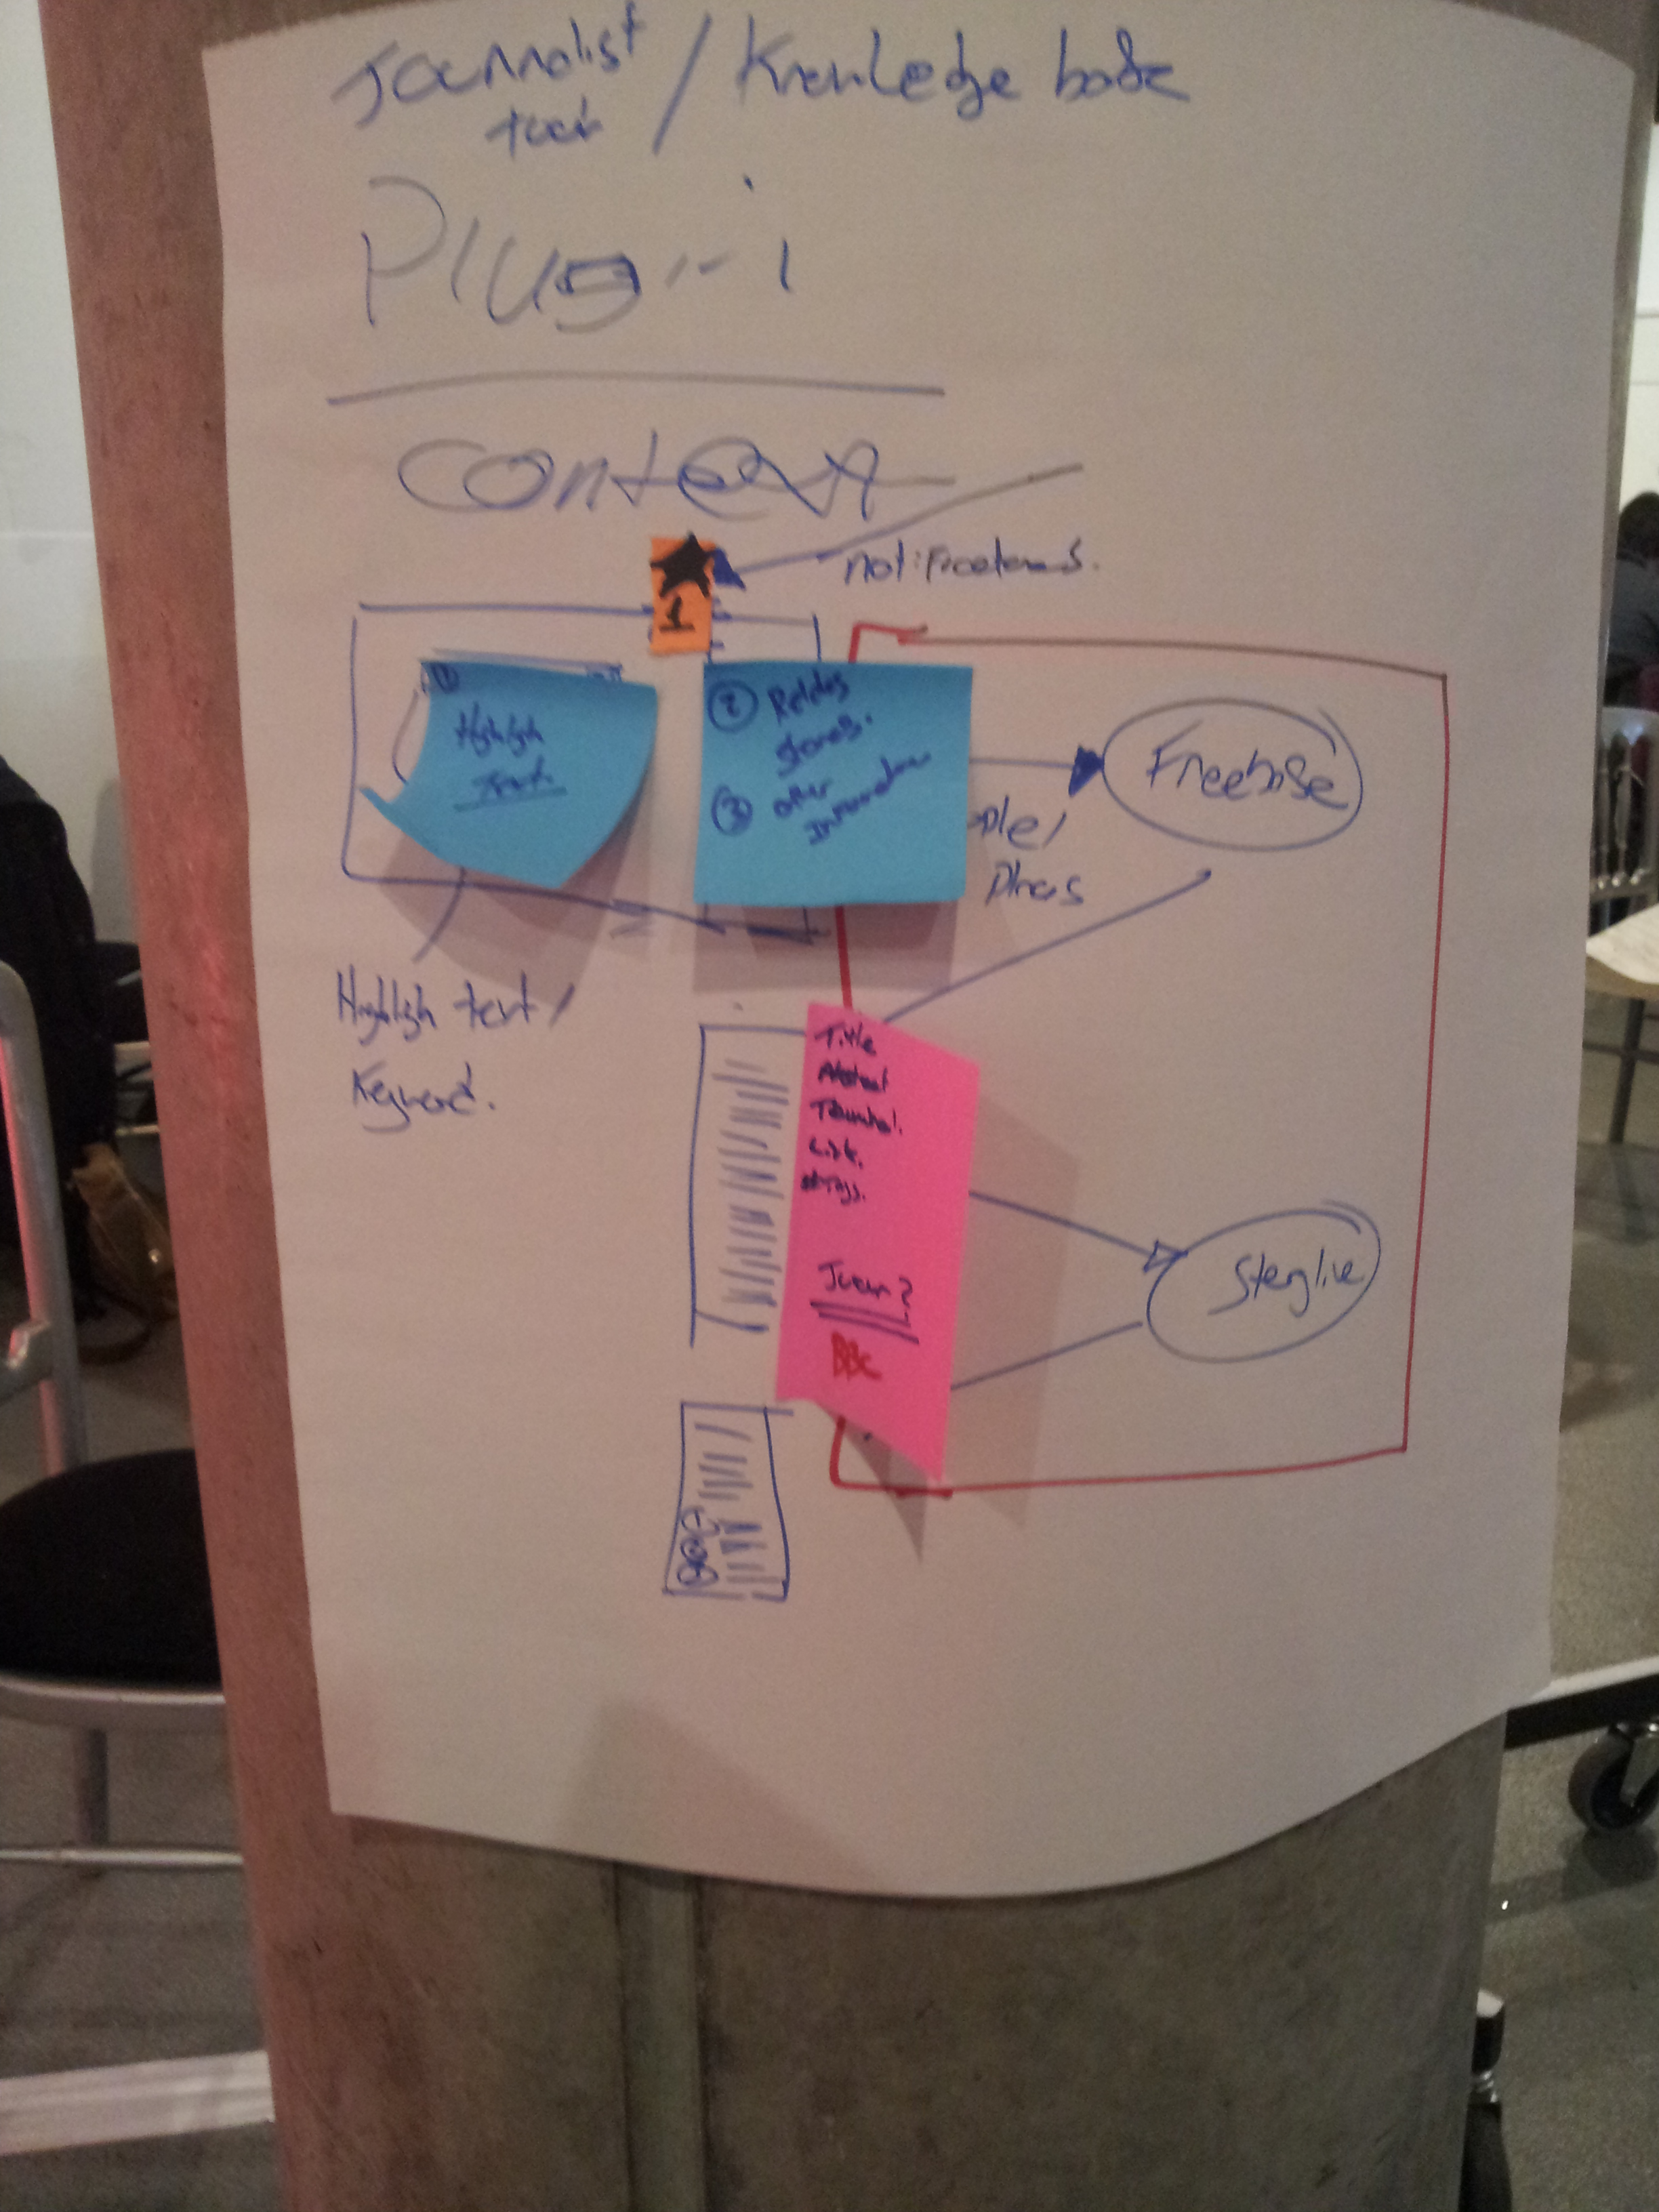 Journalist / Knowledge base
Plug-i
Context
notifications.
1
①
Highligh
Text
② Relates
stories.
③ other
Information
Freebase
ple/
Plces
Highligh text/
Keyword.
Title
Abstract
Thumbnal.
Link.
#Tags.
Juan?
BBC